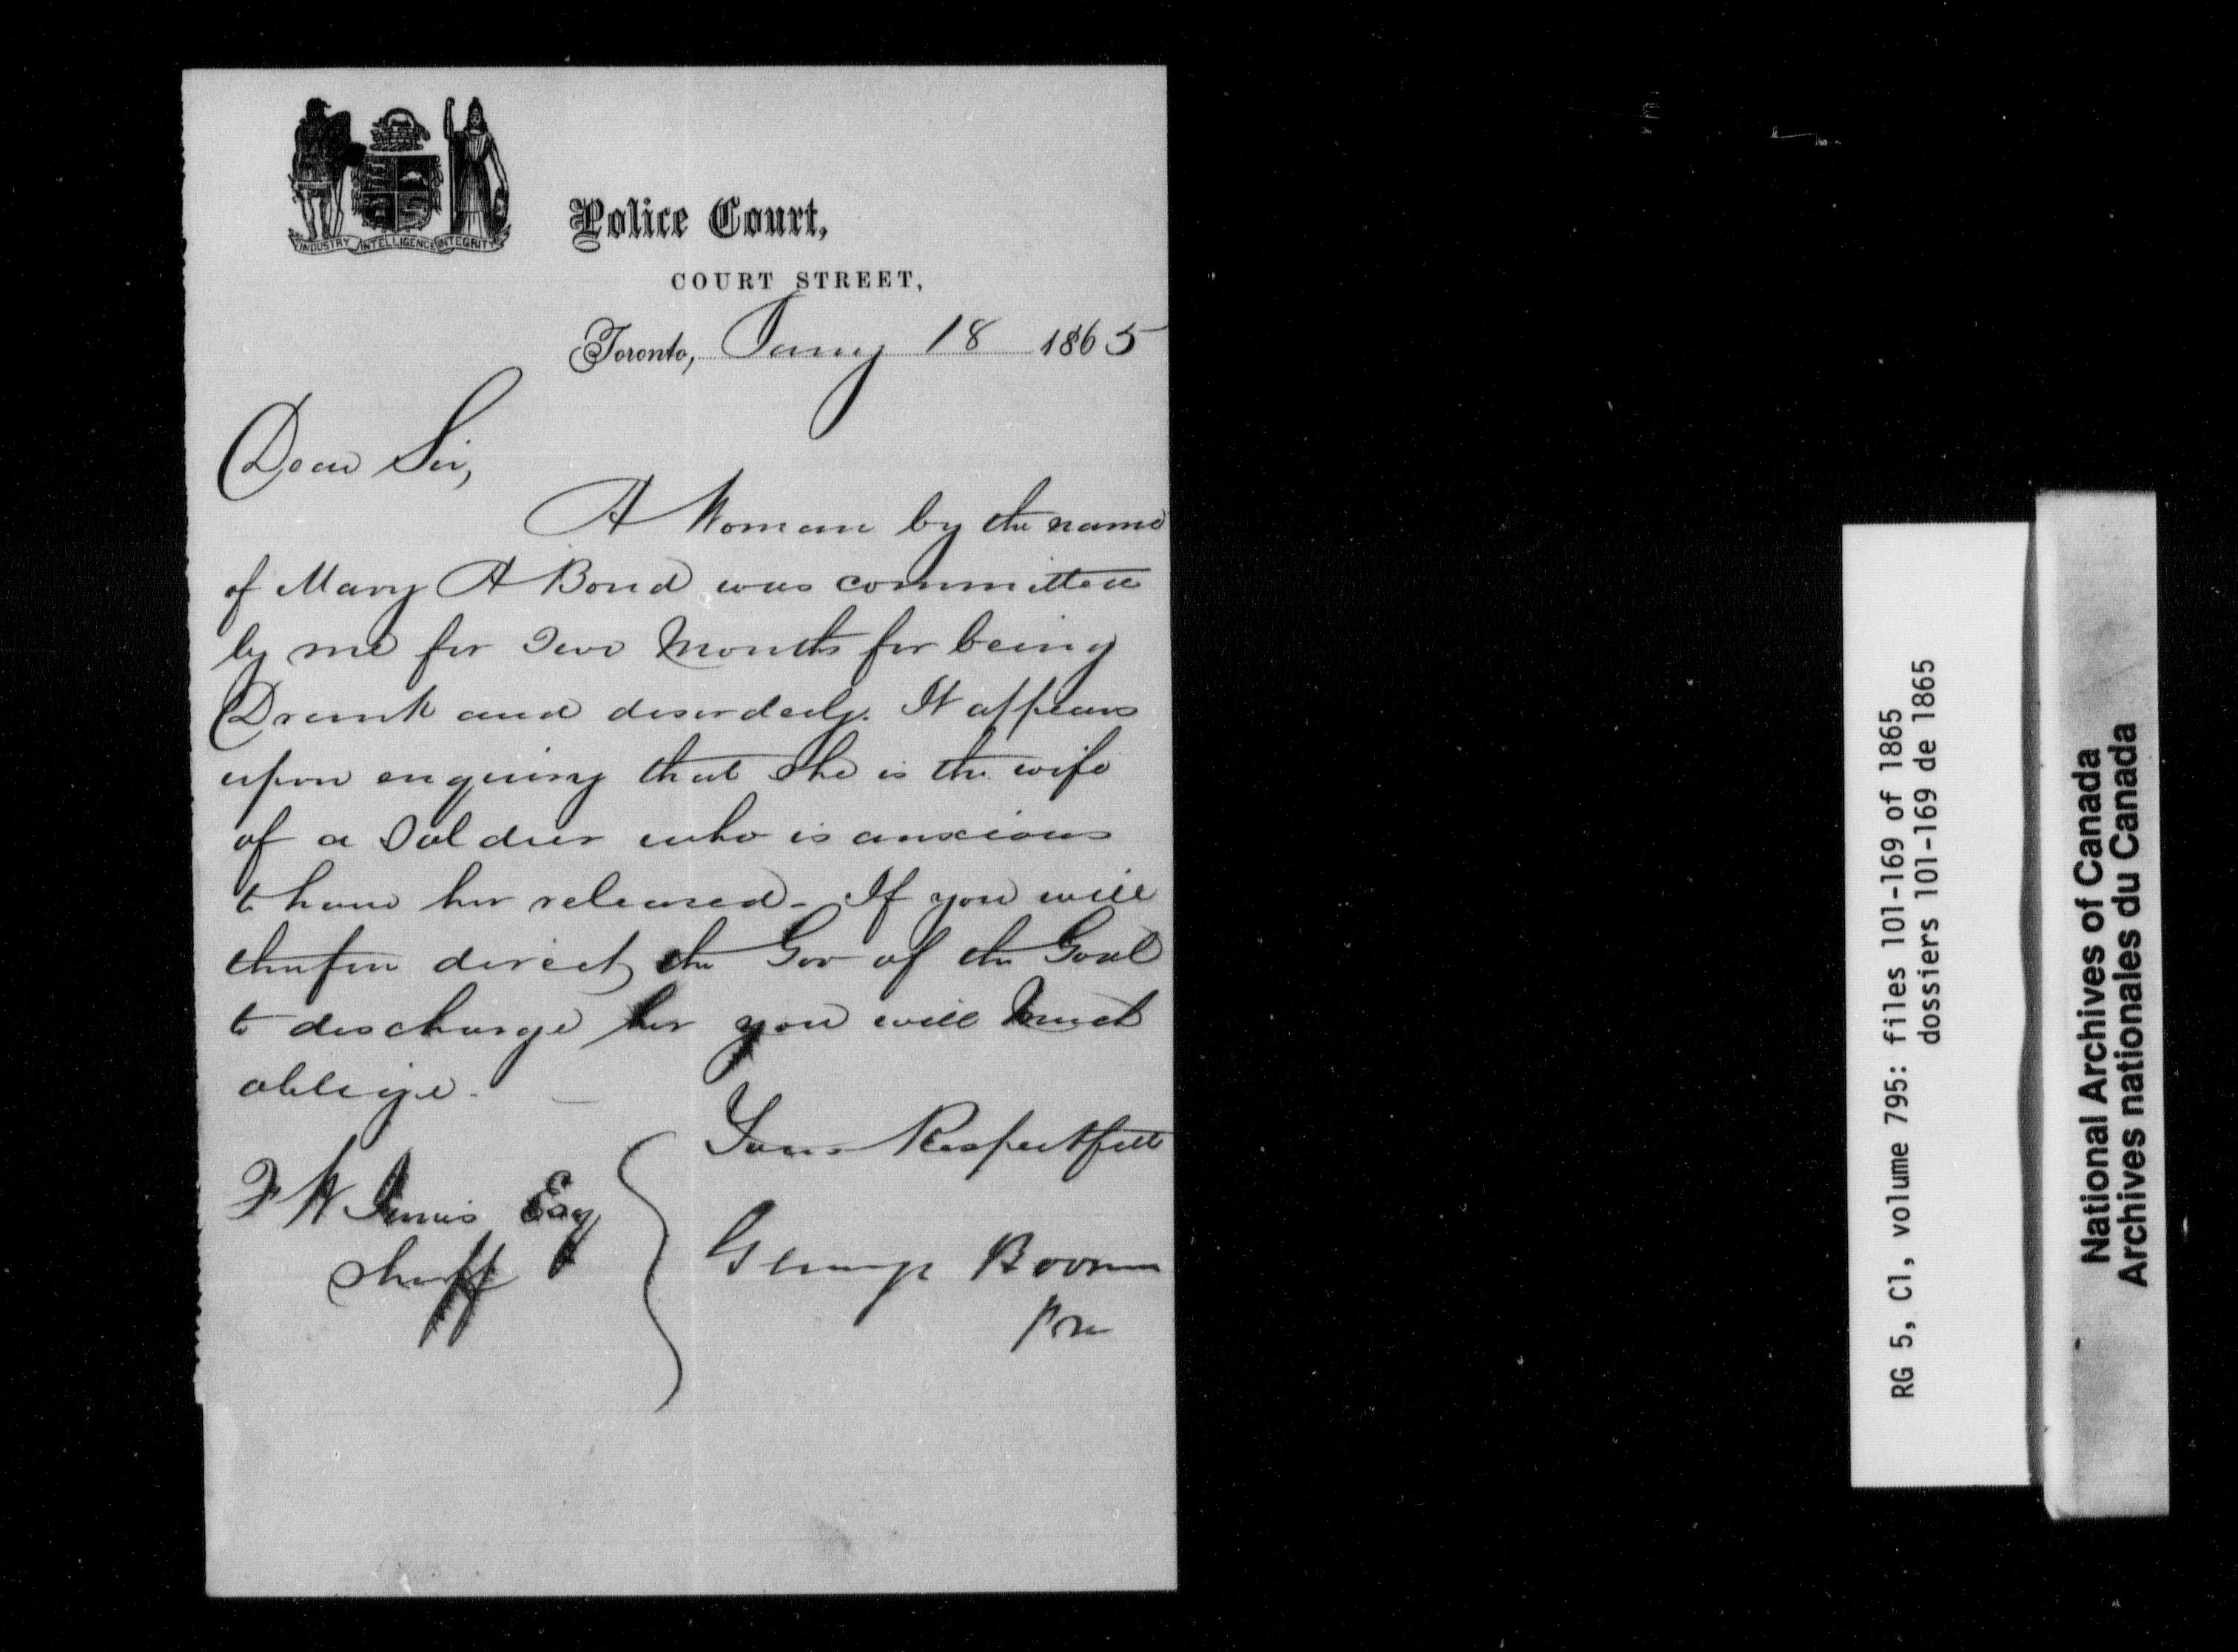 INDUSTRY INTELLIGENCE INTEGRITY
Police Court,
COURT STREET,
Toronto, Jany 18 1865
Dear Sir,
A Woman by the name
of Mary A Bond was committed
by me for Two Months for being
Drunk and disorderly. It appears
upon enquiry that she is the wife
of a Soldier who is anxious
to have her released - If you will
therefore direct the Gov of the Goal
to discharge her you will much
oblige -
Yours Respectfull
F W Jarvis Esq
Sheriff
George Boomer
PM
RG 5, C1, volume 795: files 101-169 of 1865
dossiers 101-169 de 1865
National Archives of Canada
Archives nationales du Canada